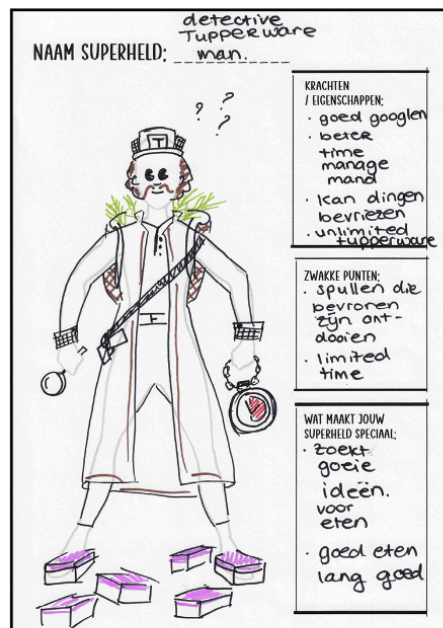 detective
Tupperware
NAAM SUPERHELD; man.
? ? ?
T
KRACHTEN
/ EIGENSCHAPPEN;
· goed googlen
· beter
time
manage
mand
· kan dingen
bevriezen
· unlimited
tupperware
ZWAKKE PUNTEN;
· spullen die
bevroren
zijn ont-
dooien
· limited
time
WAT MAAKT JOUW
SUPERHELD SPECIAAL;
· zoekt
goeie
ideën.
voor
eten
· goed eten
lang goed